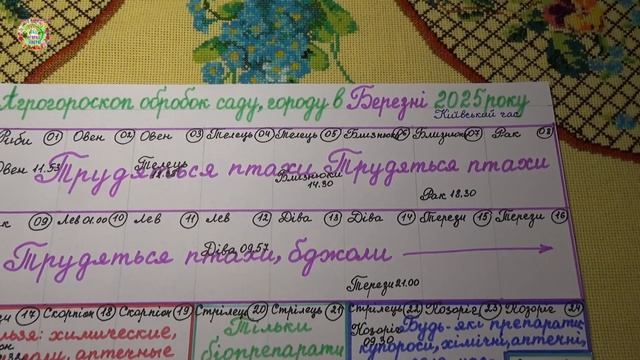 Агрогороскоп обробок саду, городу в Березні 2025 року
Київській час
Риби 01 Овен 02 Овен 03 Телець 04 Телець 05 Близнюки 06 Близнюки 07 Рак 08
Овен 11.53 Телець Близнюки 14.30 Рак 18.30
Трудяться птахи, Трудяться птахи
09 Лев 01.00 10 Лев 11 Лев 12 Діва 13 Діва 14 Терези 15 Терези 16
Трудяться птахи, бджоли
Діва 09.57 Терези 21.00
17 Скорпіон 18 Скорпіон 19 Стрілець 20 Стрілець 21 Стрілець 22 Козоріг 23 Козоріг 24
химические,
аптечные
Тільки
біопрепарати
Козоріг 09.30
Будь-які препарати:
купороси, хімічні, аптечні,